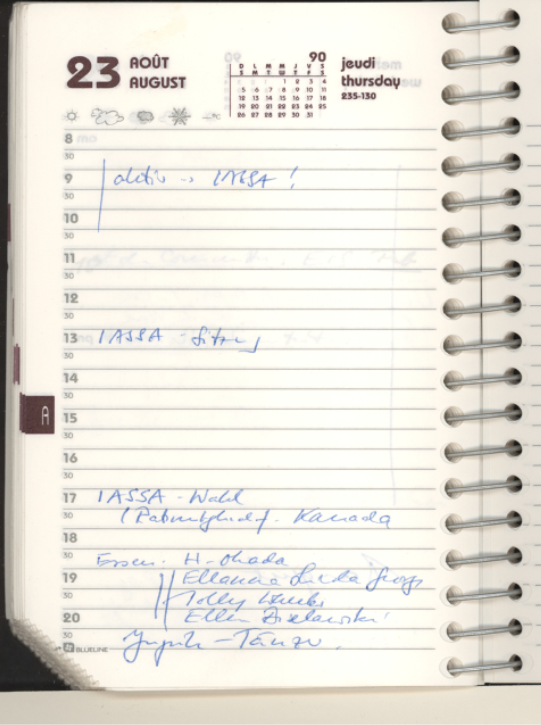 23 AOÛT
AUGUST
90
D L M M J V S
S M T W T F S
1 2 3 4
5 6 7 8 9 10 11
12 13 14 15 16 17 18
19 20 21 22 23 24 25
26 27 28 29 30 31
jeudi
thursday
235-130
8
30
9 → IASSA!
30
10
30
11
30
12
30
13 IASSA - Sitzung
30
14
30
15
30
16
30
17 IASSA - Wahl
30 Kanada
18
30 Essen: H. Okada
19 Ellanna Linda
30
20 Ellen Bielawski
30 Yupik - Tänze
BLUELINE
A